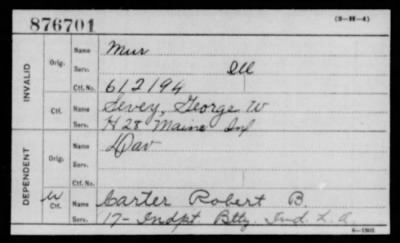 876701 (3-H-4)
INVALID
Orig. Name Mur
Serv. Ill
Ctf. No. 612194
Ctf. Name Sevey, George W
Serv. H 28 Maine Inf
DEPENDENT
Orig. Name Dav
Serv.
Ctf. No.
W Ctf. Name Carter Robert B.
Serv. 17- Indpt Btty. Ind L. A.